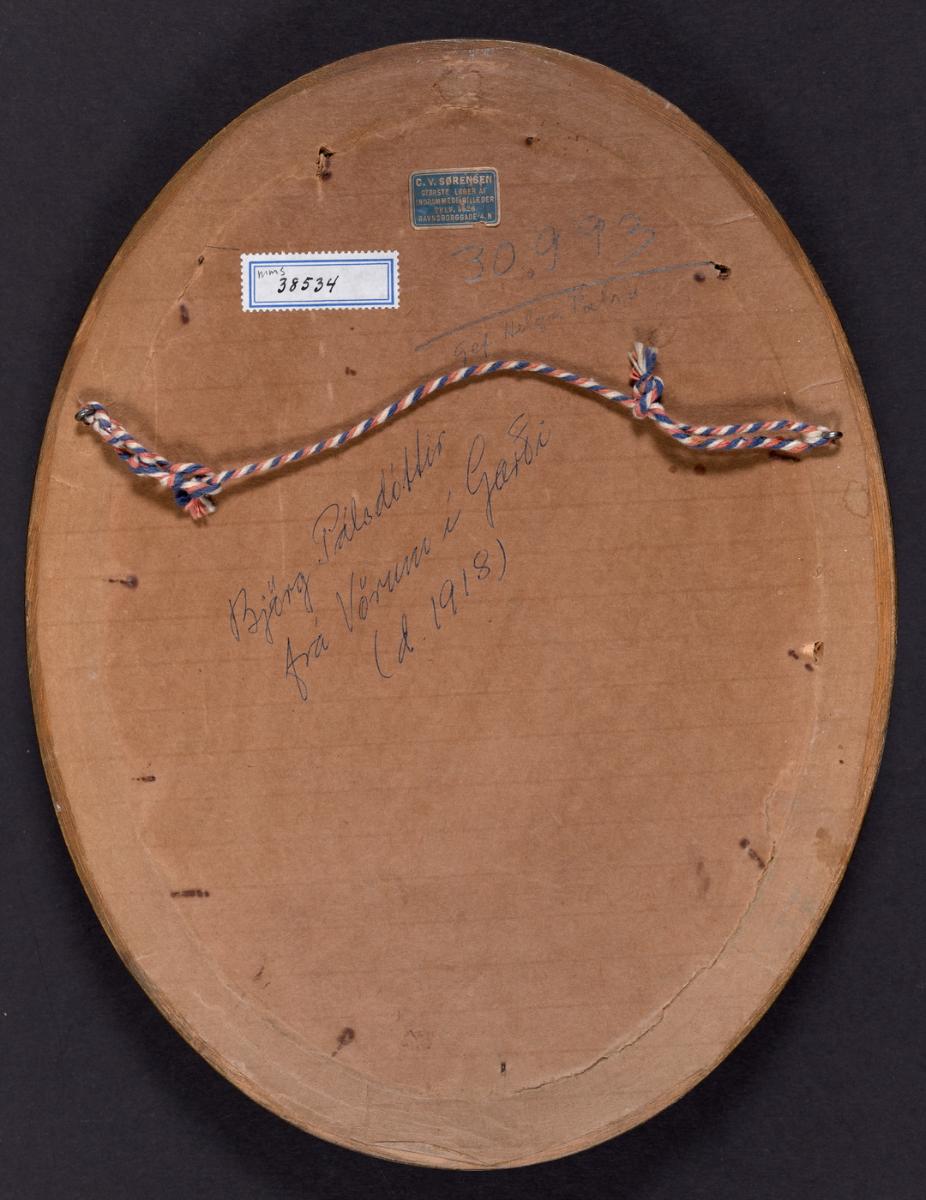 C. V. SØRENSEN
STØRSTE LAGER AF
INDRAMMEDE BILLEDER
RAVNSBORGGADE 4. N
30.993
mms
38534
Gef Helga
Björg Pálsdóttir
frá Vörum í Garði
(d. 1918)